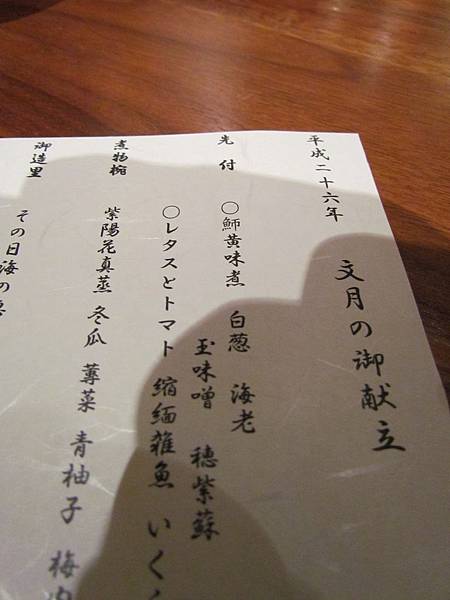 平成二十六年
文月の御献立
先付
〇鰤黄味煮 白葱 海老
玉味噌 穂紫蘇
〇レタスとトマト 縮緬雑魚 いく
煮物椀
紫陽花真蒸 冬瓜 蓴菜 青柚子 梅肉
御造里
その日海の恵